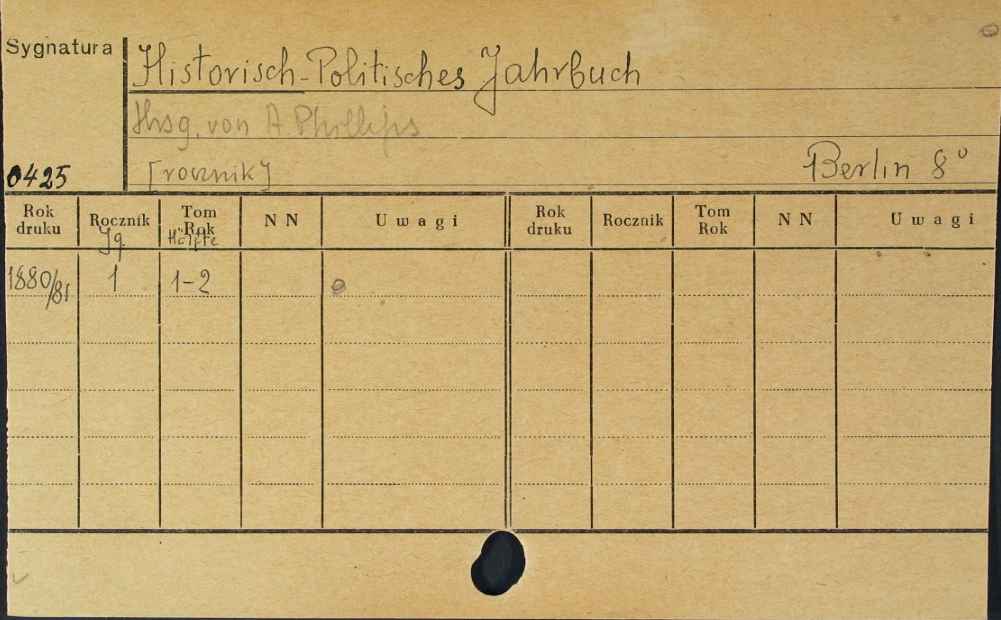 Sygnatura
Historisch-Politisches Jahrbuch
Hrsg. von A Phillips
0425 [rocznik] Berlin 8°
Rok druku Rocznik Tom Rok NN Uwagi Rok druku Rocznik Tom Rok NN Uwagi
Jg. Hälfte
1880/81 1 1-2